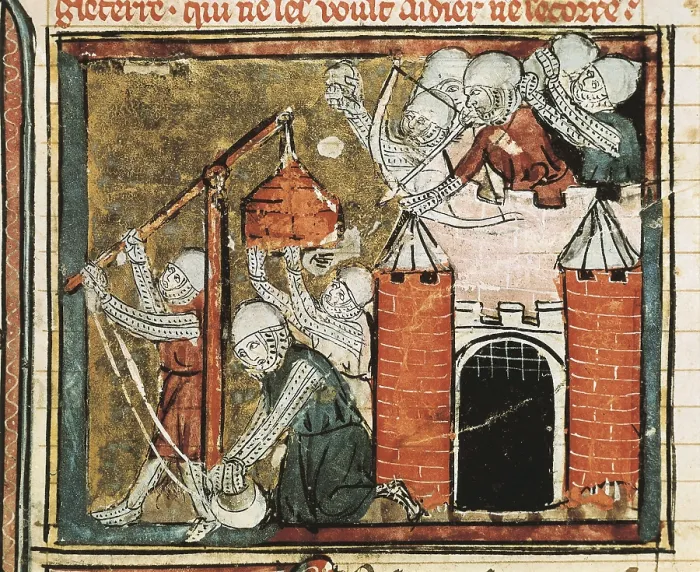 gleterre · qui ne les voult aidier ne secorre :